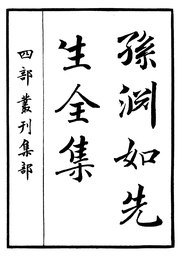 孫淵如先
生全集
四部叢刊集部